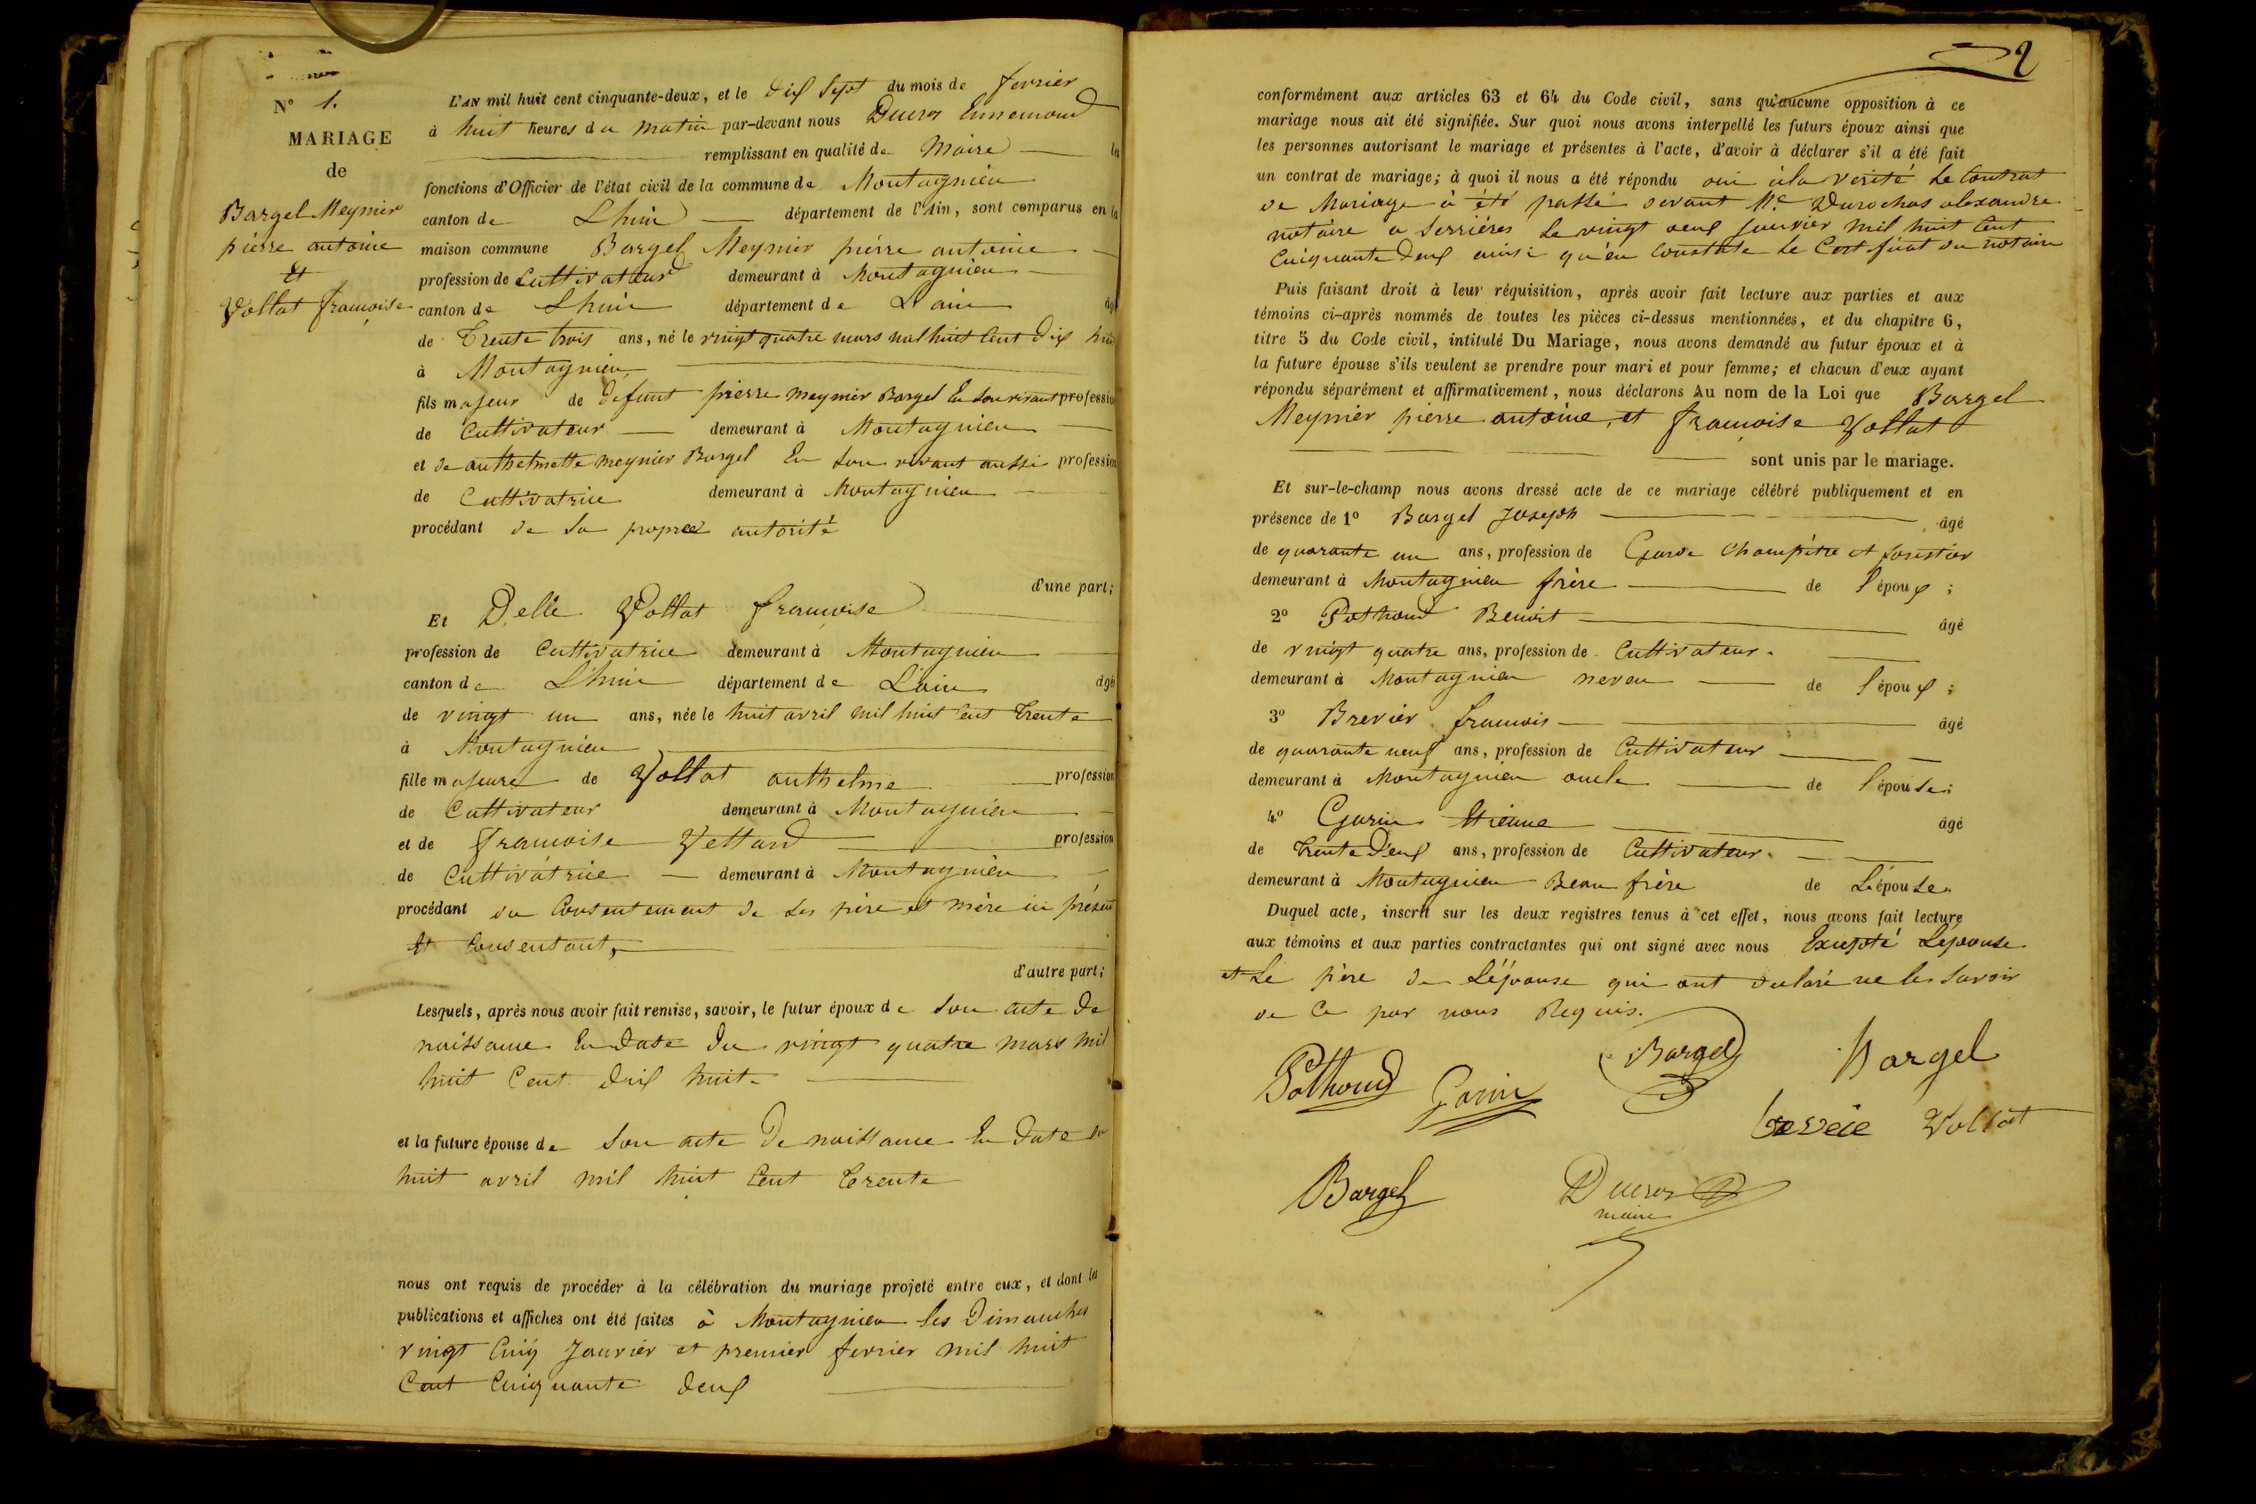 N° 1.
MARIAGE
de
Bargel Meynier
pierre antoine
Et
Vollat francoise
L'AN mil huit cent cinquante-deux, et le dix sept du mois de fevrier
à huit heures du matin par-devant nous Ducroz Ennemond
remplissant en qualité de Maire la
fonctions d'Officier de l'état civil de la commune de Montagnieu
canton de Lhuis département de l'Ain, sont comparus en la
maison commune Bargel Meynier pierre antoine
profession de Cultivateur demeurant à Montagnieu
canton de Lhuis département de L'ain âgé
de Trente trois ans, né le vingt quatre mars mil huit Cent dix huit
à Montagnieu
fils majeur de defunt pierre meynier Bargel En son vivant profession
de Cultivateur demeurant à Montagnieu
et de anthelmette meynier Bargel En son vivant aussi profession
de Cultivatrice demeurant à Montagnieu
procédant de sa propre autorité
d'une part;
Et Delle Vollat francoise
profession de Cultivatrice demeurant à Montagnieu
canton de Lhuis département de L'ain âgé
de vingt un ans, née le huit avril mil huit Cent Trente
à Montagnieu
fille majeure de Vollat anthelme profession
de Cultivateur demeurant à Montagnieu
et de francoise Vettard profession
de Cultivatrice demeurant à Montagnieu
procédant du Consentement de ses père et mère ici présent
Et Consentant,
d'autre part;
Lesquels, après nous avoir fait remise, savoir, le futur époux de son acte de
naissance En date du vingt quatre mars mil
huit Cent dix huit
et la future épouse de son acte de naissance En date du
huit avril mil huit Cent Trente
nous ont requis de procéder à la célébration du mariage projeté entre eux, et dont les
publications et affiches ont été faites à Montagnieu les dimanches
vingt Cinq Janvier et premier fevrier mil huit
Cent Cinquante deux
2
conformément aux articles 63 et 64 du Code civil, sans qu'aucune opposition à ce
mariage nous ait été signifiée. Sur quoi nous avons interpellé les futurs époux ainsi que
les personnes autorisant le mariage et présentes à l'acte, d'avoir à déclarer s'il a été fait
un contrat de mariage; à quoi il nous a été répondu oui à la verité Le Contrat
de Mariage à été passé devant Me Durochas alexandre
notaire a Serrières Le vingt deux Janvier mil huit Cent
Cinquante deux ainsi qu'en Constate Le Certificat du notaire
Puis faisant droit à leur réquisition, après avoir fait lecture aux parties et aux
témoins ci-après nommés de toutes les pièces ci-dessus mentionnées, et du chapitre 6,
titre 5 du Code civil, intitulé Du Mariage, nous avons demandé au futur époux et à
la future épouse s'ils veulent se prendre pour mari et pour femme; et chacun d'eux ayant
répondu séparément et affirmativement, nous déclarons Au nom de la Loi que Bargel
Meynier pierre antoine, et francoise Vollat
sont unis par le mariage.
Et sur-le-champ nous avons dressé acte de ce mariage célébré publiquement et en
présence de 1° Bargel Joseph âgé
de quarante un ans, profession de Garde Champêtre et forestier
demeurant à Montagnieu frère de l'époux;
2° Pothoud Benoit âgé
de vingt quatre ans, profession de Cultivateur.
demeurant à Montagnieu neveu de l'époux;
3° Brevier francois âgé
de quarante neuf ans, profession de Cultivateur
demeurant à Montagnieu oncle de l'épouse;
4° Garin Etienne âgé
de Trente deux ans, profession de Cultivateur.
demeurant à Montagnieu Beau frère de L'épouse.
Duquel acte, inscrit sur les deux registres tenus à cet effet, nous avons fait lecture
aux témoins et aux parties contractantes qui ont signé avec nous Excepté L'épouse
et Le père de L'épouse qui ont declaré ne les savoir
de Ce par nous Requis.
Pothoud Garin Bargel Bargel
Vollat
Bargel Ducroz
maire